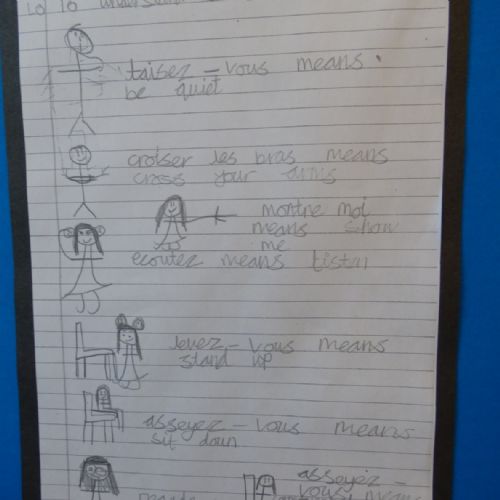 LO To understand
taisez - vous means
be quiet
croiser les bras means
cross your arms
montre moi
means show
me
ecoutez means listn
levez - vous means
stand up
asseyez - vous means
sit down
asseyez -
vous